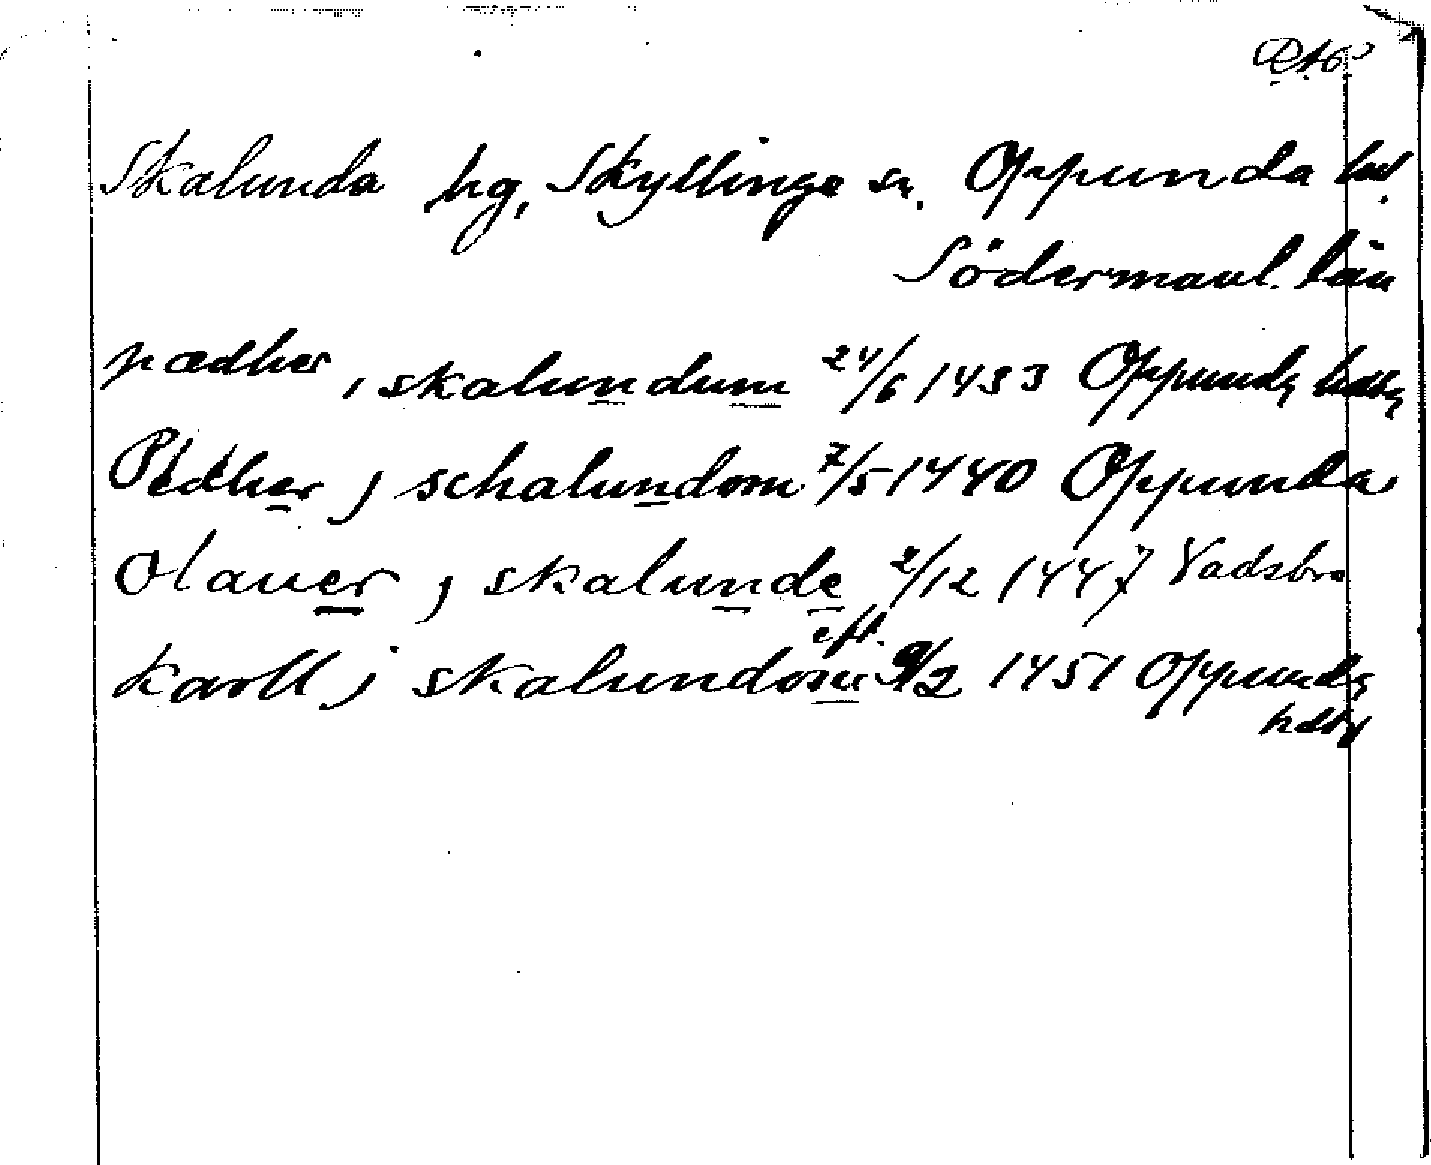 Skalunda hg, Skyllinge sn. Oppunda hd.
Södermanl. län
pædher, i skalundum 24/6 1433 Oppunda hdtg
Pædher j schalundom 7/5 1440 Oppunda
Olauer j skalunde 2/12 1447 Vadsbro
eft.
karll j skalundom 9/2 1451 Oppunda
hdtg